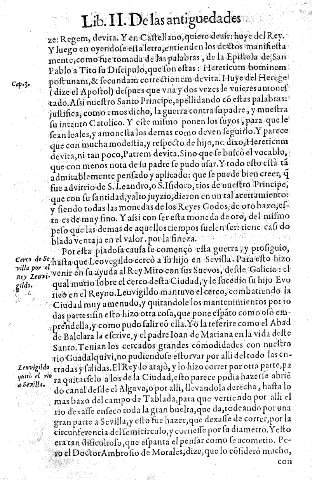 Lib. II. De las antiguedades
ze: Regem, devita. Y en Castellano, quiere desse: huye del Rey.
Y luego en oyendose esta letra, entienden los doctos manifiesta
mente, como fue tomada de las palabras, de la Epistola de San
Pablo a Tito su Discipulo, que son estas: Hereticum hominem
post unam, & secundam correctionem devita. Huye del Herege
Cap. 3.
(dize el Apostol) despues que vna y dos vezes le vuieres amones
tado. Assi nuestro Santo Principe, apellidando cō estas palabras:
justifica, como emos dicho, la guerra contra su padre, y muestra
su intento Catolico. Y este mismo ponen los suyos, para que le
sean leales, y amonesta los demas como deven seguirlo. Y parece
que con mucha modestia, y respecto de hijo, no dixo, Hereticum
devita, ni tan poco, Patrem devita. Sino que se buscó el vocablo,
que con menos nota de la padre se pudo usar. Y todo esto está tā
admirablemente pensado y aplicado: que se puede bien creer, q̄
fue advitrio de S. Leandro, o S. Isidoro, tios de nuestro Principe,
que con su santidad, y alto juyzio, dieron en tal acertamiento:
y siendo todas las monedas de los Reyes Godos, de oro baxo, es
ta es de muy fino. Y assi con ser esta moneda de oro, del mismo
peso que las demas de aquellos tiempos suelen ser: tiene casi do
blada ventaja en el valor, por la fineza.
Por esta piadosa causa se començo esta guerra, y prosiguio,
Cerco de Se
villa por el
Rey Leuvi-
gildo.
hasta que Leuvigildo cercó a su hijo en Sevilla. Para esto hizo
venir en su ayuda al Rey Miro con sus Suevos, desde Galicia: el
qual murio sobre el cerco desta Ciudad, y le succedio su hijo Evo
rico en el Reyno. Leuvigildo mantuvo el cerco, combatiendo la
Ciudad muy amenudo, y quitandole los mantenimientos por to
das partes: sin esto hizo otra cosa, que pone espāto como osó em-
prendella, y como pudo salir cō ella. Yo la referire como el Abad
de Balclara la escrive, y el padre Ioan de Mariana en la vida deste
Santo. Tenian los cercados grandes cōmodidades con nuestro
rio Guadalquivi, no pudiendose estorvar por alli del todo las en
tradas y salidas. El Rey lo atajó, y lo hizo correr por otra parte, pa
Leuvigildo
quitó el rio
a Sevilla.
ra quitarselo a los de la Ciudad, esto parece podia hazerse abriē
do canal desde el Algava, o por alli, llevandola derecha, hasta lo
mas baxo del campo de Tablada, para que vertiendo por alli el
rio dexasse en seco toda la gran buelta, que da, rodeando por una
gran parte a Sevilla, y esto fue hazer, que dexasse de correr, por la
circunferencia del semicirculo, y corriesse por su diametro. Y esto
era tan dificultoso, que espanta el pensar como se acometio. Pe-
ro el Doctor Ambrosio de Morales, dize, que lo cōsideró mucho,
con